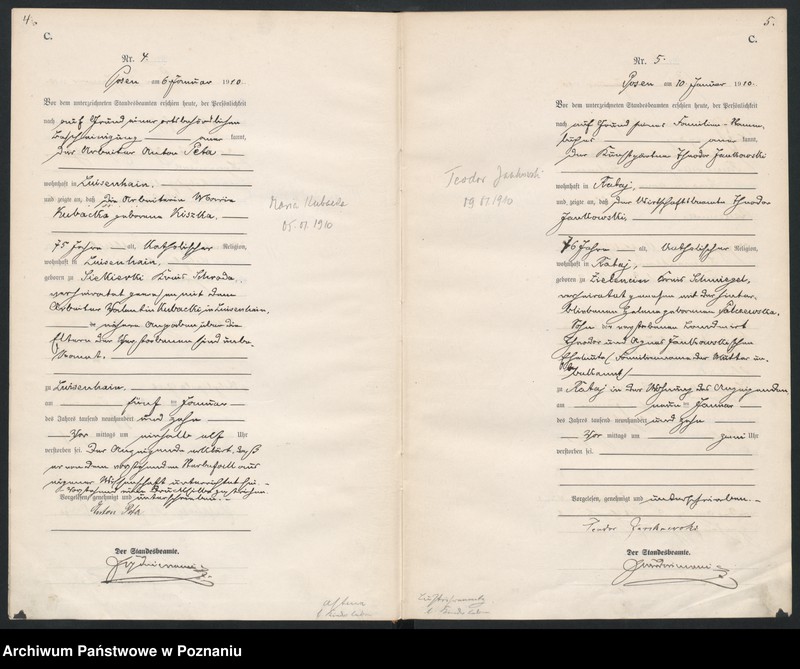 4
C.
Nr. 4.
Posen am 6 Januar 1910.
Vor dem unterzeichneten Standesbeamten erschien heute, der Persönlichkeit
nach auf Grund einer ortsbehördlichen
Bescheinigung aner kannt,
der Arbeiter Anton Peta
wohnhaft in Luisenhain,
und zeigte an, daß die Arbeiterin Maria
Kubacka geborene Kiszka,
75 Jahre alt, katholischer Religion,
wohnhaft in Luisenhain,
geboren zu Siekierki Kreis Schroda,
verheiratet gewesen mit dem
Arbeiter Valentin Kubacki, in Luisenhain,
nähere Angaben über die
Eltern der Verstorbenen sind unbe-
kannt.
zu Luisenhain
am fünf ten Januar
des Jahres tausend neunhundert und zehn
Vor mittags um einhalb elf Uhr
verstorben sei. Der Anzeigende erklärt, daß
er von dem vorstehenden Sterbefall aus
eigener Wissenschaft unterrichtet sei.
Vorstehend ein Drucksilbe gestrichen.
Vorgelesen, genehmigt und unterschrieben.
Anton Peta
Der Standesbeamte.
Maria Kubacka
05.01.1910
5.
C.
Nr. 5.
Posen am 10 Januar 1910.
Vor dem unterzeichneten Standesbeamten erschien heute, der Persönlichkeit
nach auf Grund seines Familien-Stamm-
buches aner kannt,
der Kunstgärtner Theodor Jankowski
wohnhaft in Rataj,
und zeigte an, daß der Wirtschaftsbeamte Theodor
Jankowski,
76 Jahre alt, katholischer Religion,
wohnhaft in Rataj,
geboren zu Zielencin Kreis Schmiegel,
verheiratet gewesen mit der hinter-
bliebenen geborenen
Sohn der verstorbenen Landwirt
Theodor und Agnes Jankowskischen
Eheleute (Familienname der Mutter un-
bekannt)
zu Rataj in der Wohnung des Anzeigenden
am neun ten Januar
des Jahres tausend neunhundert und zehn
Vor mittags um Uhr
verstorben sei.
Vorgelesen, genehmigt und unterschrieben.
Teodor Jankowski
Der Standesbeamte.
Teodor Jankowski
09.01.1910
Archiwum Państwowe w Poznaniu